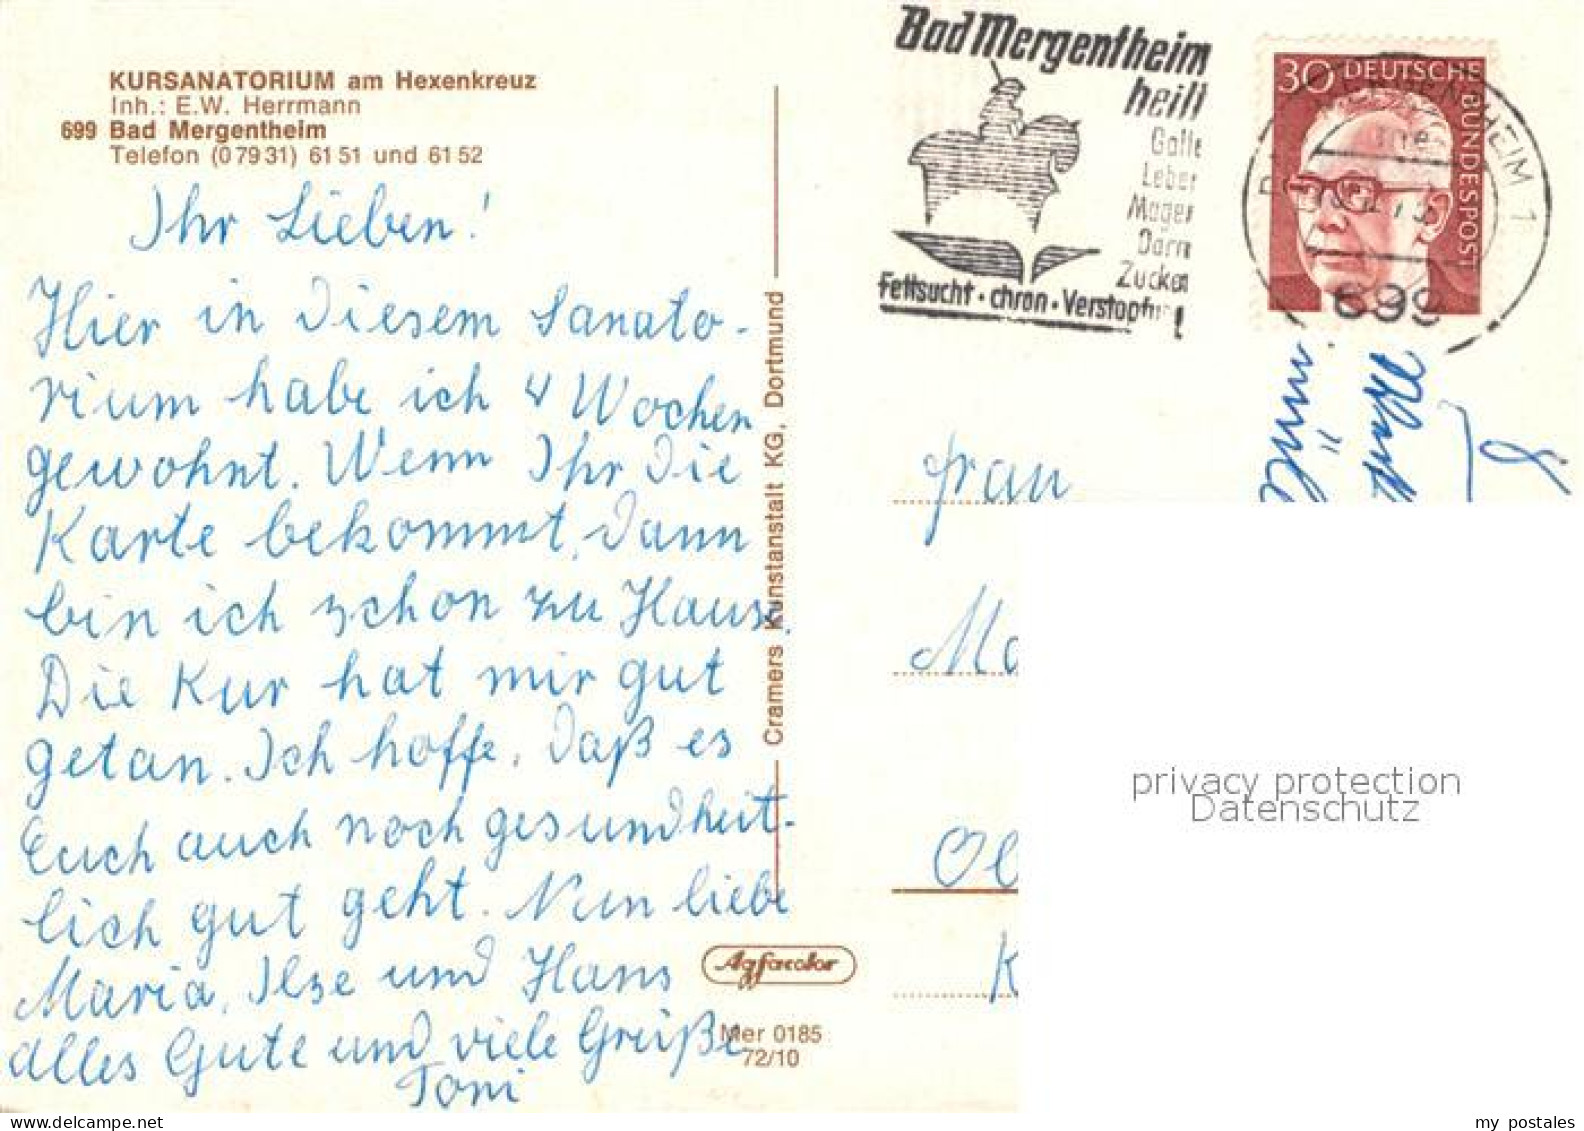 KURSANATORIUM am Hexenkreuz
Inh.: E.W. Herrmann
699 Bad Mergentheim
Telefon (0 79 31) 61 51 und 61 52
Ihr Lieben!
Hier in Diesem Sanato-
rium habe ich 4 Wochen
gewohnt. Wenn Ihr Die
Karte bekommt, Dann
bin ich schon zu Hause.
Die Kur hat mir gut
getan. Ich hoffe, Daß es
Euch auch noch gesundheit-
lich gut geht. Nun liebe
Maria, Ilse und Hans
alles Gute und viele Grüße
Toni
Cramers Kunstanstalt KG, Dortmund
Agfacolor
Mer 0185
72/10
Bad Mergentheim
heilt
Galle
Leber
Magen
Darm
Zucker
Fettsucht · chron · Verstopfung!
30 DEUTSCHE
BUNDESPOST
MERGENTHEIM 1
699
Frau
Ma
Ol
K
privacy protection
Datenschutz
my postales